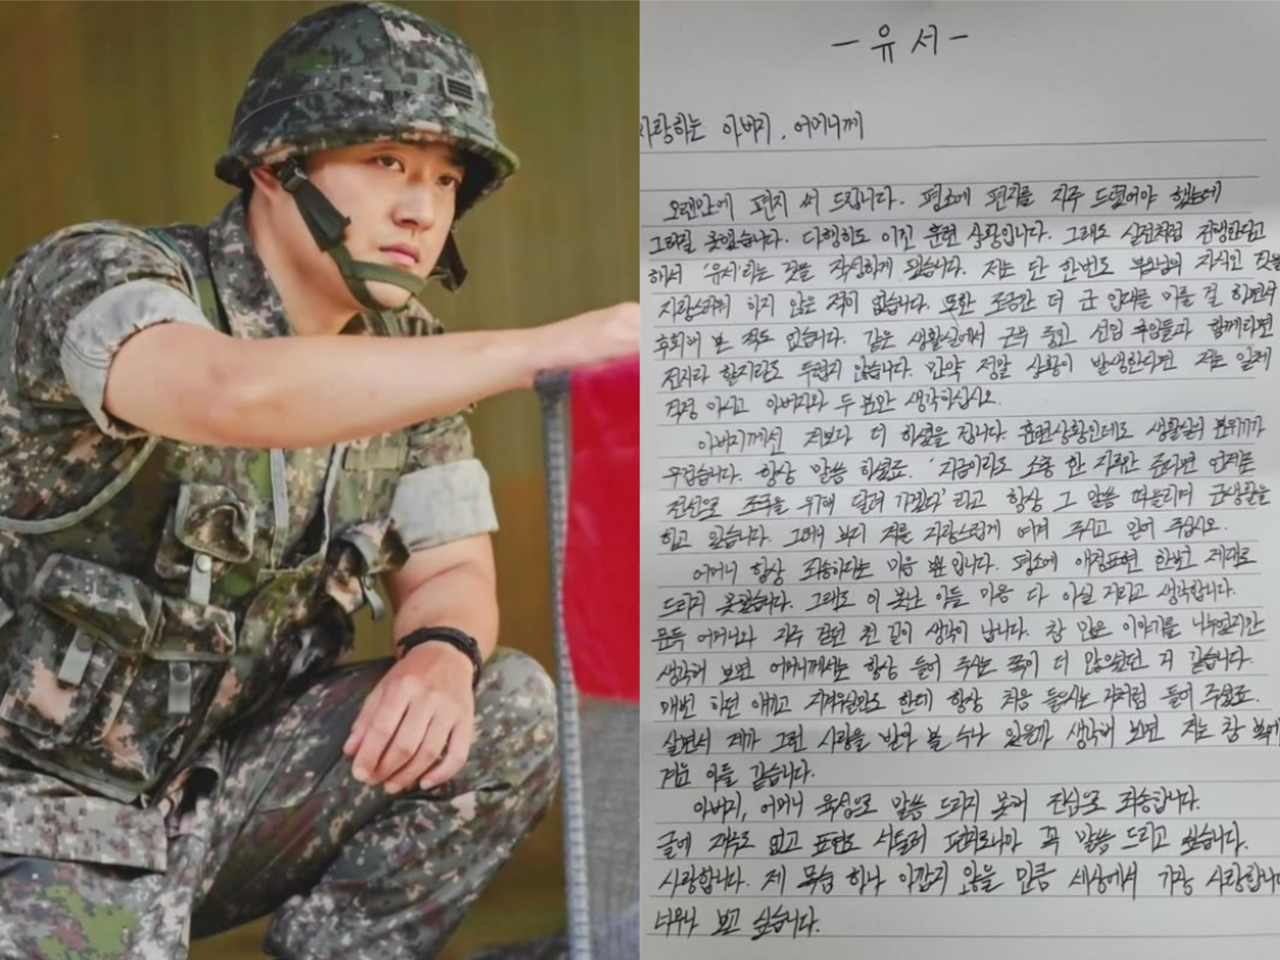 - 유 서 -
사랑하는 아버지, 어머니께
오랜만에 편지 써 드립니다. 평소에 편지를 자주 드렸어야 했는데
그러질 못했습니다. 다행히도 이건 훈련 상황입니다. 그래도 실전처럼 진행한다고
해서 '유서'라는 것을 작성하게 됐습니다. 저는 단 한번도 부모님의 자식인 것을
자랑스러워 하지 않은 적이 없습니다. 또한 조금만 더 군 입대를 미룰 걸 하면서
후회해 본 적도 없습니다. 같은 생활실에서 근무 중인 선임 후임들과 함께라면
전시라 할지라도 두렵지 않습니다. 만약 정말 상황이 발생한다면 저는 일체
걱정 마시고 아버지와 두 분만 생각하십시오.
아버지께선 저보다 더 하셨을 겁니다. 훈련상황인데도 생활실의 분위기가
무겁습니다. 항상 말씀 하셨죠. '지금이라도 소총 한 자루만 준다면 언제든
전선으로 조국을 위해 달려 가겠다' 라고 항상 그 말씀 떠올리며 군생활을
하고 있습니다. 그러니 부디 저를 자랑스럽게 여겨 주시고 믿어 주십시오.
어머니 항상 죄송하다는 마음 뿐입니다. 평소에 애정표현 한번 제대로
드리지 못했습니다. 그래도 이 못난 아들 마음 다 아실 거라고 생각합니다.
문득 어머니와 자주 걷던 천 길이 생각이 납니다. 참 많은 이야기를 나누었지만
생각해 보면 어머니께서는 항상 들어 주시는 쪽이 더 많았었던 거 같습니다.
매번 하던 얘기고 지겨우실만도 한데 항상 처음 들으시는 것처럼 들어 주셨죠.
살면서 제가 그런 사랑을 받아 볼 수나 있을까 생각해 보면 저는 참
아들 같습니다.
아버지, 어머니 육성으로 말씀 드리지 못해 진심으로 죄송합니다.
글에 재주도 없고 표현도 서툴러 편지로나마 꼭 말씀 드리고 싶습니다.
사랑합니다. 제 목숨 하나 아깝지 않을 만큼 세상에서 가장 사랑합니다
너무나 보고 싶습니다.